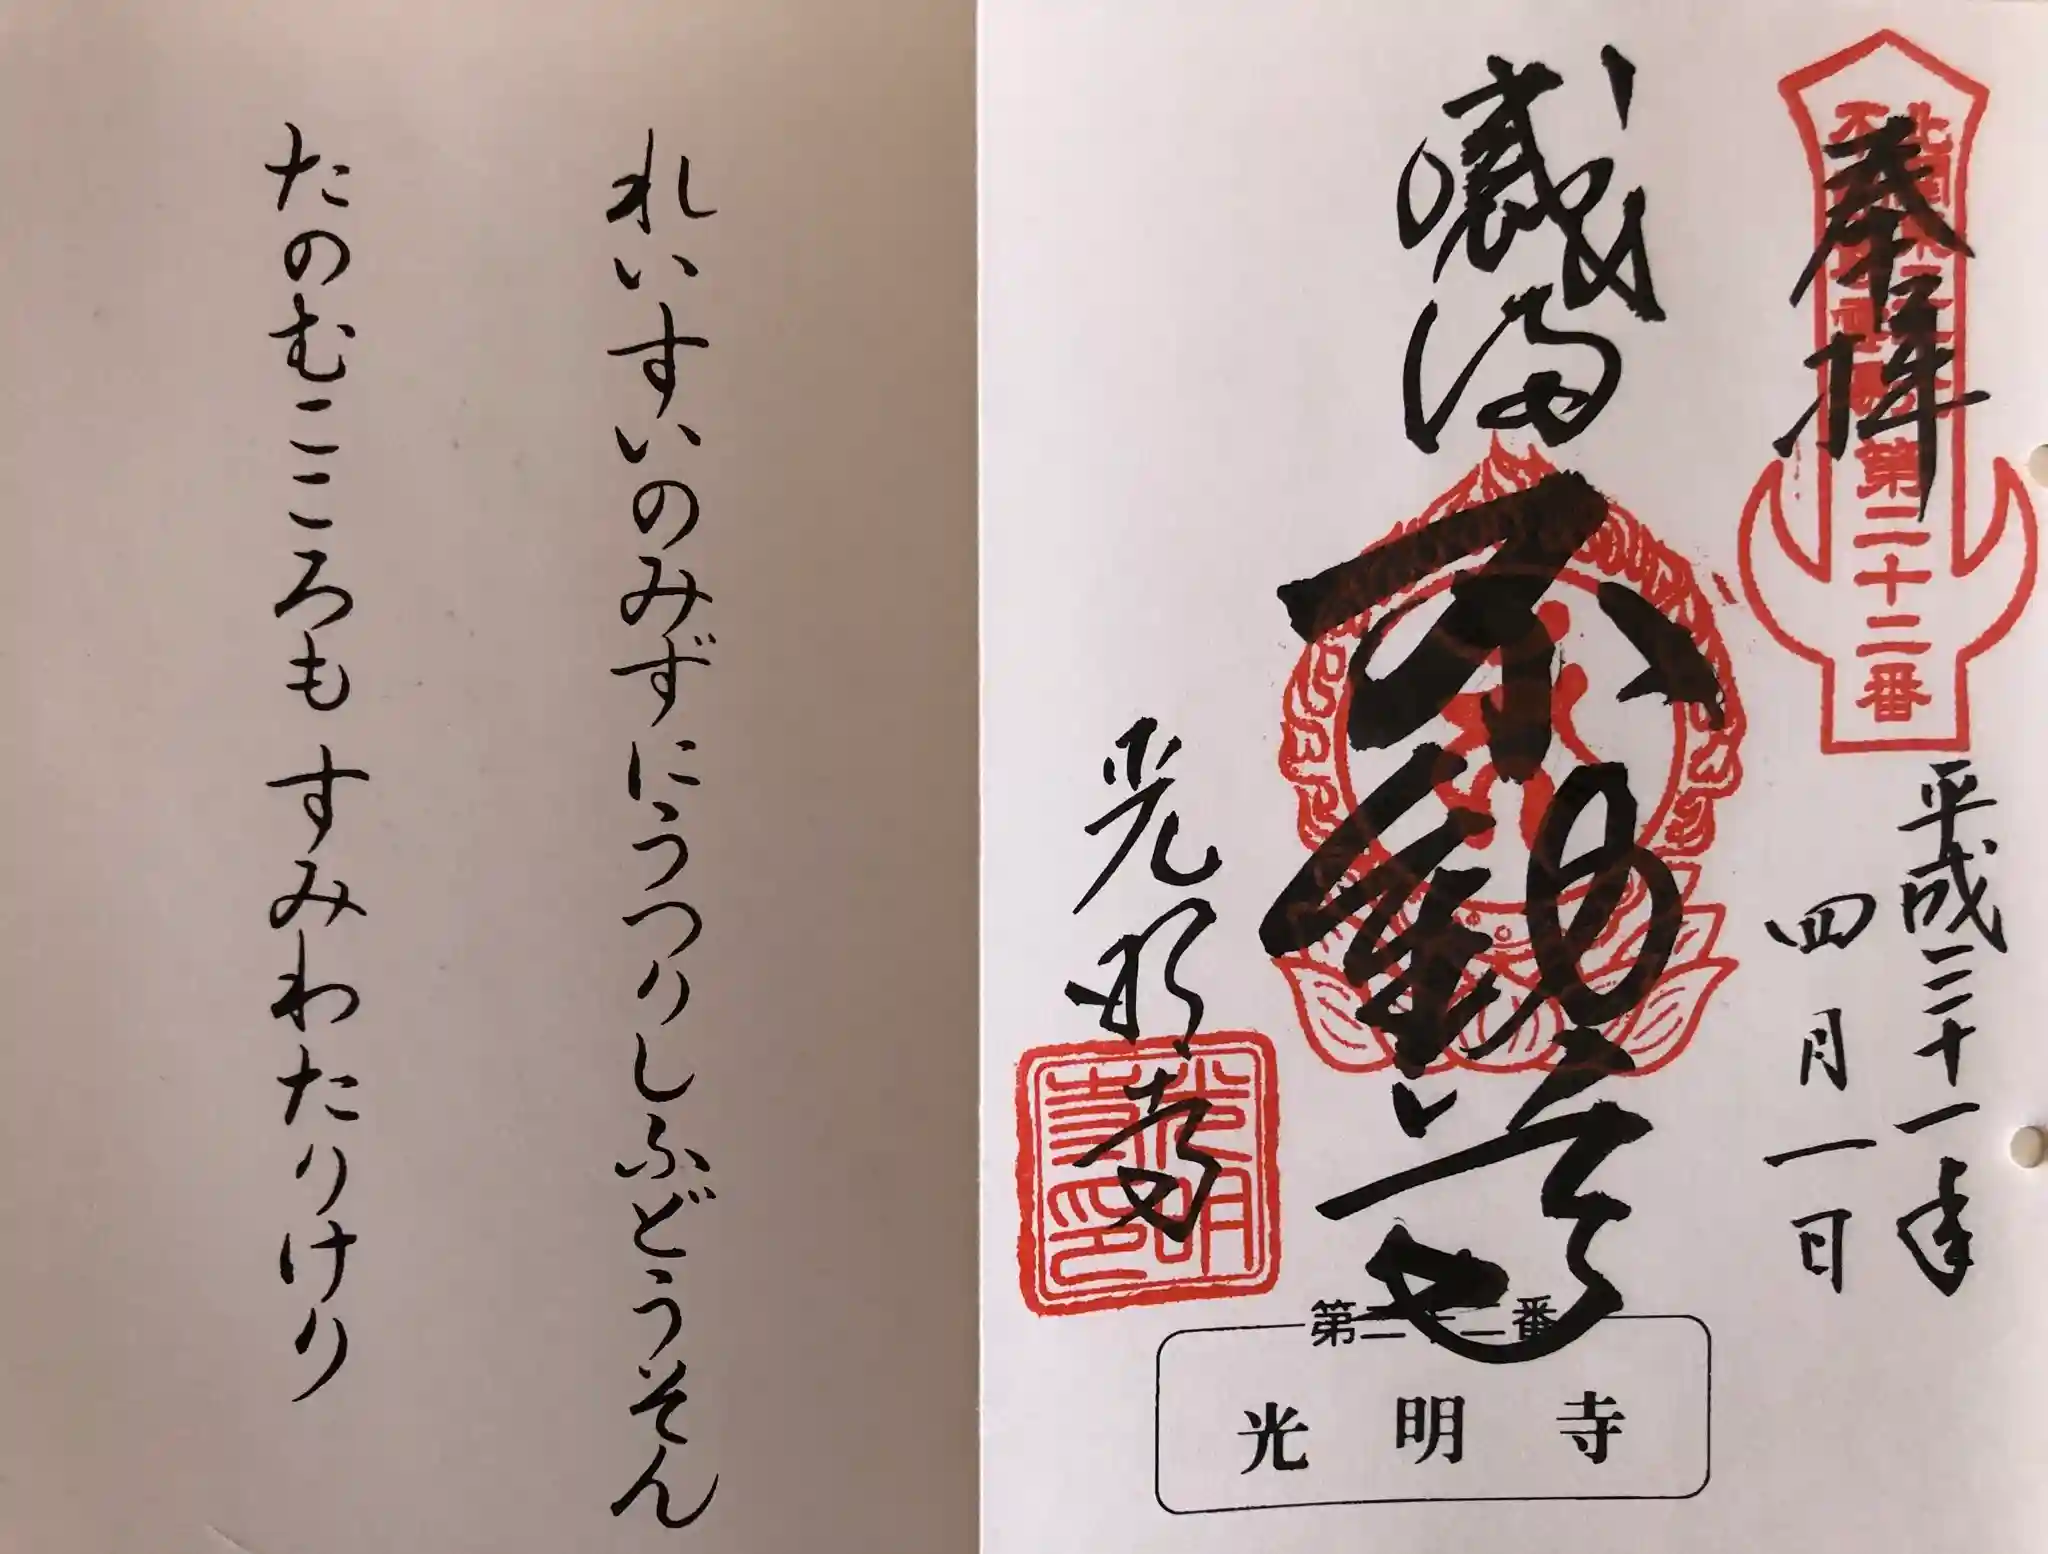 奉拝
第二十二番
平成三十一年
四月一日
不動尊
光明寺
光明寺印
第二十二番
光明寺
れいすいのみずにうつりしふどうそん
たのむこころも すみわたりけり